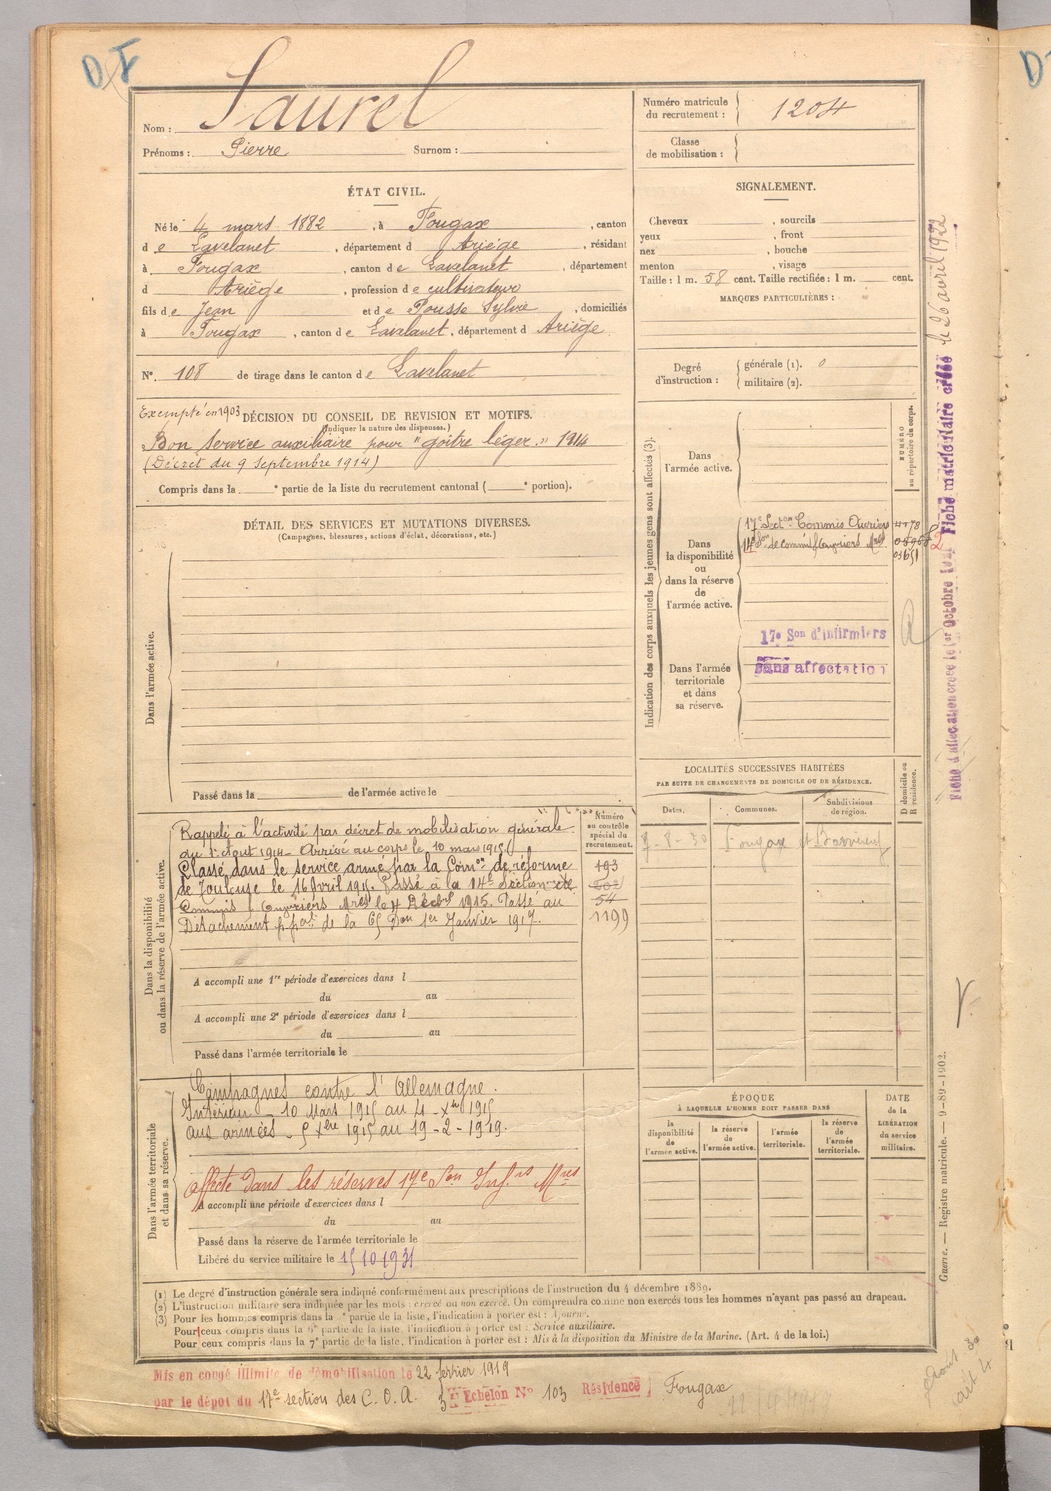 D I
Nom : Saurel
Prénoms : Pierre Surnom :
Numéro matricule du recrutement : 1204
Classe de mobilisation :
ÉTAT CIVIL.
Né le 4 mars 1882, à Fougax, canton
d e Lavelanet, département d Ariège, résidant
à Fougax, canton de Lavelanet, département
d Ariège, profession de cultivateur
fils de Jean et de Pousse Sylvie, domiciliés
à Fougax, canton de Lavelanet, département d Ariège.
N° 108 de tirage dans le canton de Lavelanet
SIGNALEMENT.
Cheveux , sourcils
yeux , front
nez , bouche
menton , visage
Taille : 1 m. 58 cent. Taille rectifiée : 1 m. cent.
MARQUES PARTICULIÈRES :
Degré d'instruction : générale (1). 0
militaire (2).
Exempté en 1903 DÉCISION DU CONSEIL DE REVISION ET MOTIFS.
(Indiquer la nature des dispenses.)
Bon service auxiliaire pour "goitre léger." 1914
(Décret du 9 Septembre 1914)
Compris dans la e partie de la liste du recrutement cantonal ( e portion).
DÉTAIL DES SERVICES ET MUTATIONS DIVERSES.
(Campagnes, blessures, actions d'éclat, décorations, etc.)
Dans l'armée active.
Passé dans la de l'armée active le
Indication des corps auxquels les jeunes gens sont affectés (3).
NUMÉRO au répertoire du corps.
Dans l'armée active.
Dans la disponibilité ou dans la réserve de l'armée active.
17e Sect on Commis Ouvriers
14e Son de commis & ouvriers Mres
03651
Dans l'armée territoriale et dans sa réserve.
17e Son d'infirmiers
Sans affectation
LOCALITÉS SUCCESSIVES HABITÉES
PAR SUITE DE CHANGEMENTS DE DOMICILE OU DE RÉSIDENCE.
Dates. Communes. Subdivisions de région. D domicile ou R résidence.
8-30 Fougax et Barrineuf
Dans la disponibilité ou dans la réserve de l'armée active.
Numéro au contrôle spécial du recrutement.
Rappelé à l'activité par décret de mobilisation générale
du 1er août 1914 - Arrivé au corps le 10 mars 1915
Classé dans le service armé par la Comon de réforme
de Toulouse le 16 Avril 1915. Passé à la 14e Section de
Commis & Ouvriers Mres le 4 Décbre 1915. Passé au
Détachement de la 65 Don 1er Janvier 1917.
193
54
1199
A accompli une 1re période d'exercices dans l
du au
A accompli une 2e période d'exercices dans l
du au
Passé dans l'armée territoriale le
Dans l'armée territoriale et dans sa réserve.
Campagnes contre l'Allemagne.
Intérieur - 10 Mars 1915 au 4 - Xbre 1915
aux armées - 5 Xbre 1915 au 19 - 2 - 1919.
Affecté dans les réserves 17e Son Infers Mres
A accompli une période d'exercices dans l
du au
Passé dans la réserve de l'armée territoriale le
Libéré du service militaire le 15 10 1931
ÉPOQUE
À LAQUELLE L'HOMME DOIT PASSER DANS
la disponibilité de l'armée active. la réserve de l'armée active. l'armée territoriale. la réserve de l'armée territoriale.
DATE de la LIBÉRATION du service militaire.
(1) Le degré d'instruction générale sera indiqué conformément aux prescriptions de l'instruction du 4 décembre 1889.
(2) L'instruction militaire sera indiquée par les mots : exercé ou non exercé. On comprendra comme non exercés tous les hommes n'ayant pas passé au drapeau.
(3) Pour les hommes compris dans la e partie de la liste, l'indication à porter est : Ajourné.
Pour ceux compris dans la 6e partie de la liste, l'indication à porter est : Service auxiliaire.
Pour ceux compris dans la 7e partie de la liste, l'indication à porter est : Mis à la disposition du Ministre de la Marine. (Art. 4 de la loi.)
Mis en congé illimité de démobilisation le 22 février 1919
par le dépôt du 17e section des C. O. A. 3e Echelon N° 103 Résidence ) Fougax
Fiche d'affectation créée le 1er Octobre Fiche matriculaire créée le 26 avril 1922
Guerre. — Registre matricule. — 9-89-1902.